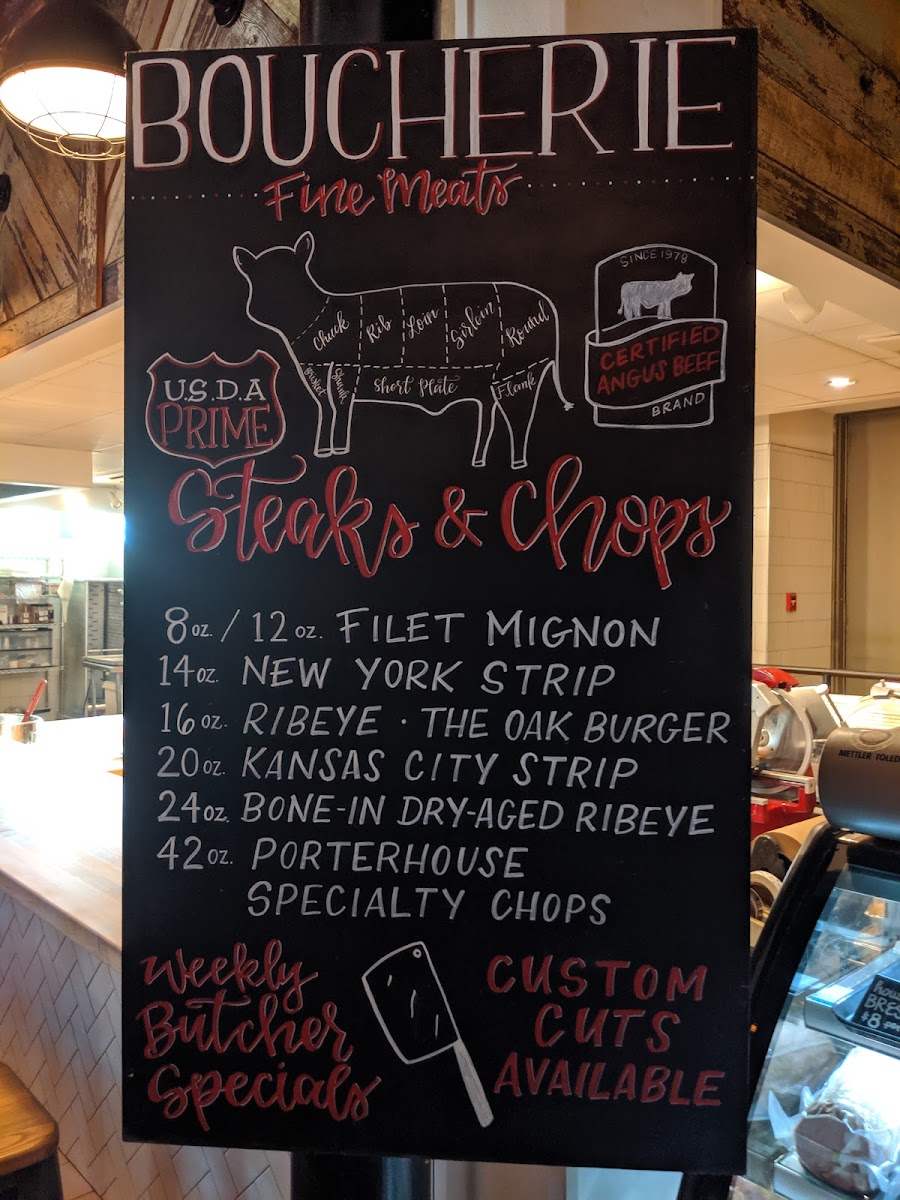 BOUCHERIE
Fine Meats
Chuck
Rib
Loin
Sirloin
Round
Brisket
Shank
Short Plate
Flank
SINCE 1978
CERTIFIED
ANGUS BEEF
BRAND
U.S.D.A
PRIME
Steaks & Chops
8oz. / 12 oz. FILET MIGNON
14oz. NEW YORK STRIP
16 oz. RIBEYE · THE OAK BURGER
20oz. KANSAS CITY STRIP
24oz. BONE-IN DRY-AGED RIBEYE
42oz. PORTERHOUSE
SPECIALTY CHOPS
Weekly
Butcher
Specials
CUSTOM
CUTS
AVAILABLE
METTLER TOLED